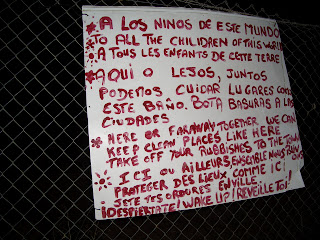 * A LOS NINOS DE ESTE MUNDO
* TO ALL THE CHILIDREN OF THIS WORLD
* A TOUS LES ENFANTS DE CETTE TERRE
* AQUI O LEJOS, JUNTOS
PODEMOS CUIDAR LUGARES COMO
ESTE BAÑO. BOTA BASURAS A LAS
CIUDADES
* HERE OR FARAWAY TOGETHER WE CAN
KEEP CLEAN PLACES LIKE HERE
TAKE OFF YOUR RUBBISHES TO THE TOWN
* ICI OU AILLEURS, ENSEMBLE NOUS
PROTEGER DES LIEUX COMME ICI
JETE TES ORDURES EN VILLE
¡DESPIERTATE! WAKE UP! REVEILLE TOI!